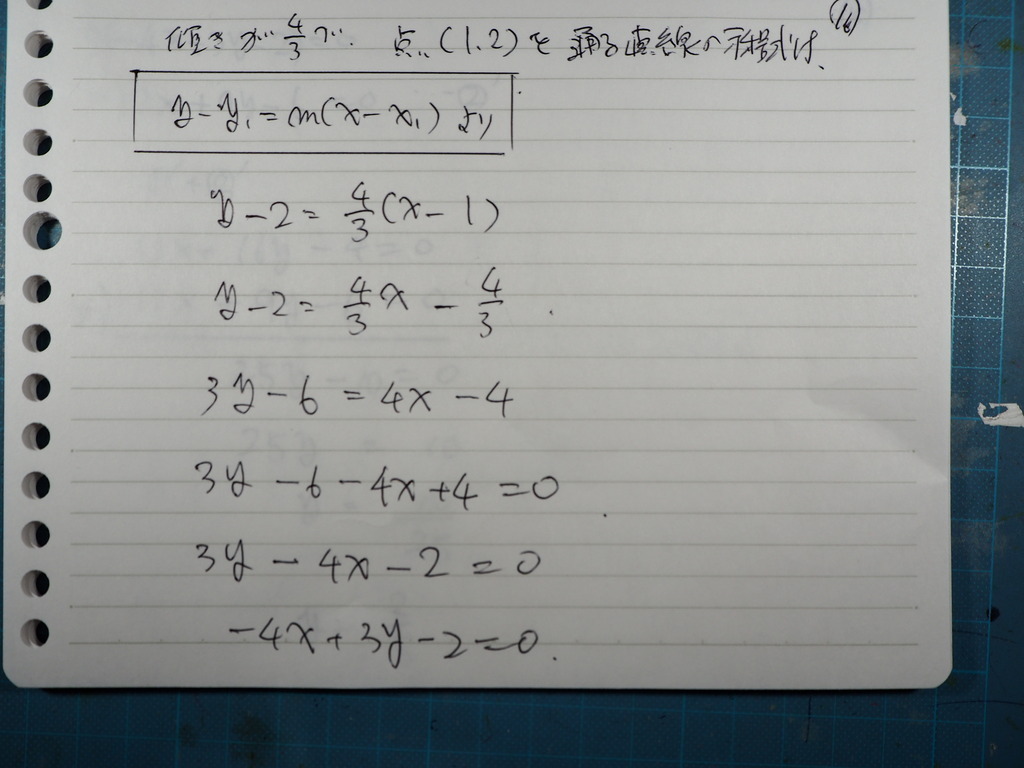 傾きが 4/3 で. 点 (1.2)を 通る直線の方程式は、
y-y₁ = m(x-x₁) より
y-2 = 4/3(x-1)
y-2 = 4/3x - 4/3
3y-6 = 4x-4
3y-6-4x+4=0
3y-4x-2=0
-4x+3y-2=0.